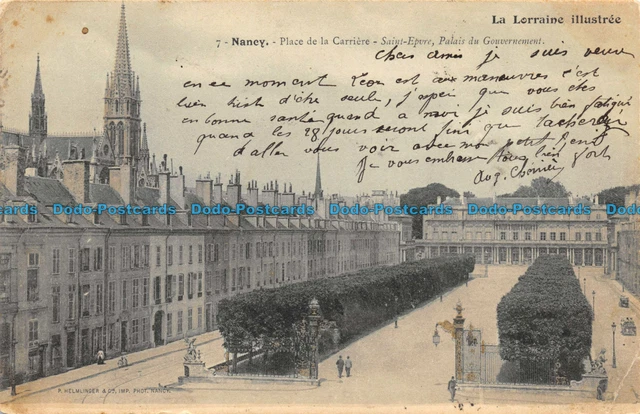 La Lorraine illustrée
7 - Nancy. - Place de la Carrière - Saint-Epvre, Palais du Gouvernement.
Chers amis je suis venue
en ce moment Léon est aux manœuvres c'est
bien triste d'être seule, j'espère que vous êtes
en bonne santé quand a moi je suis bien fatigué
quand les 28 jours seront fini que tacherai
d'aller vous voir avec mon petit
Je vous embrasse tous bien fort
Dodo-Postcards Dodo-Postcards Dodo-Postcards Dodo-Postcards Dodo-Postcards
P. HELMLINGER & Co, IMP. PHOT. NANCY.